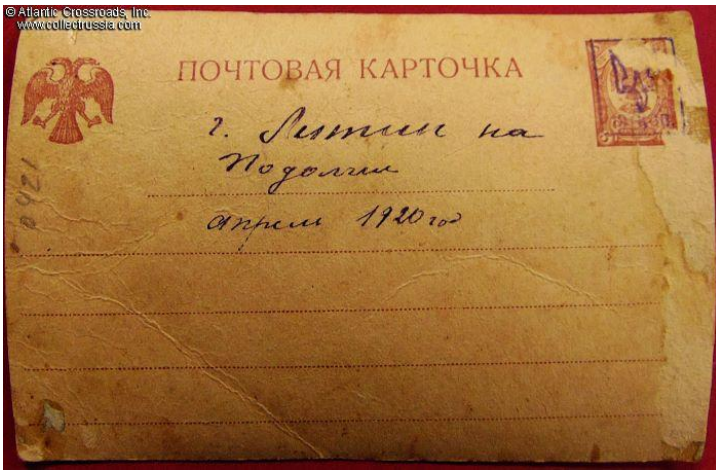 © Atlantic Crossroads, Inc.
www.collectrussia.com
ПОЧТОВАЯ КАРТОЧКА
г. Литин на
Подолии
апрель 1920 год
0421